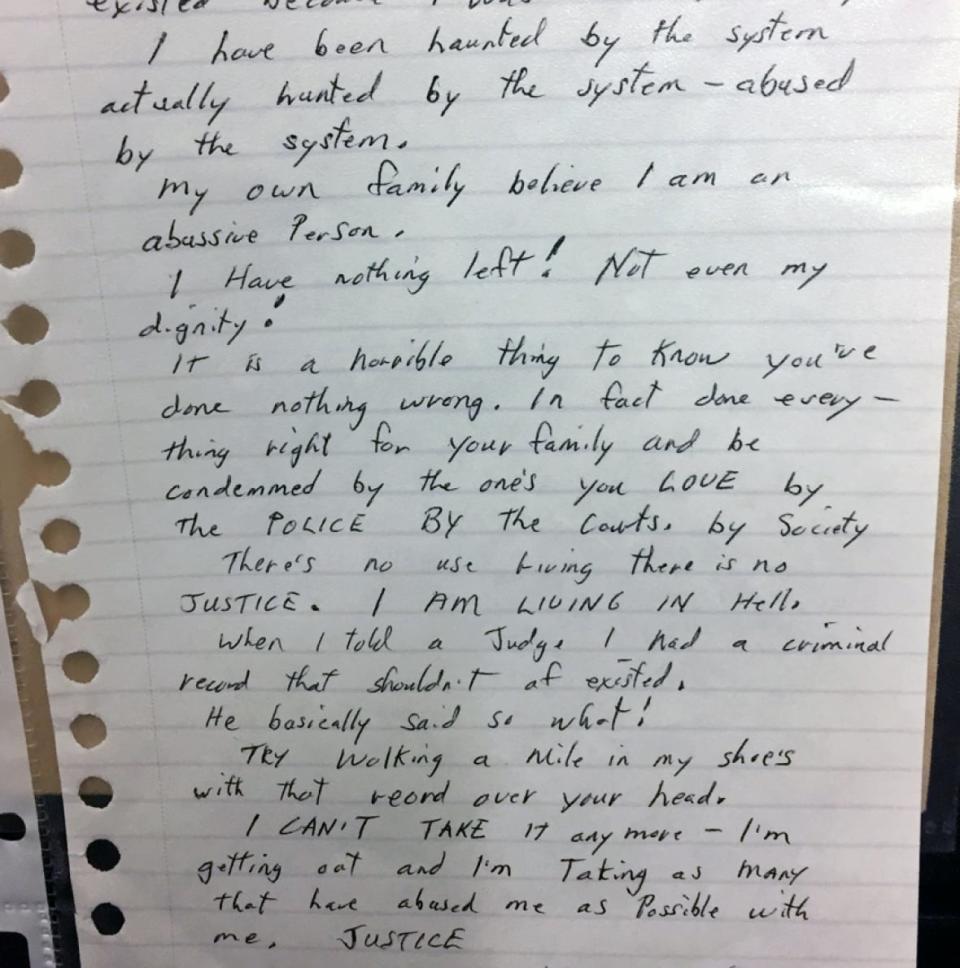 existed because I
I have been haunted by the system
actually hunted by the system – abused
by the system.
my own family believe I am an
abussive Person.
I Have nothing left! Not even my
dignity!
It is a horrible thing to know you've
done nothing wrong. In fact done every –
thing right for your family and be
condemmed by the one's you LOVE by
The POLICE BY The Courts. by Society
There's no use living there is no
JUSTICE. I AM LIVING IN Hell.
When I told a Judge I had a criminal
record that shouldn't of existed.
He basically said so what!
TRY Walking a Mile in my shoe's
with that reord over your head.
I CAN'T TAKE IT any more – I'm
getting out and I'm Taking as MANY
that have abused me as Possible with
me. JUSTICE